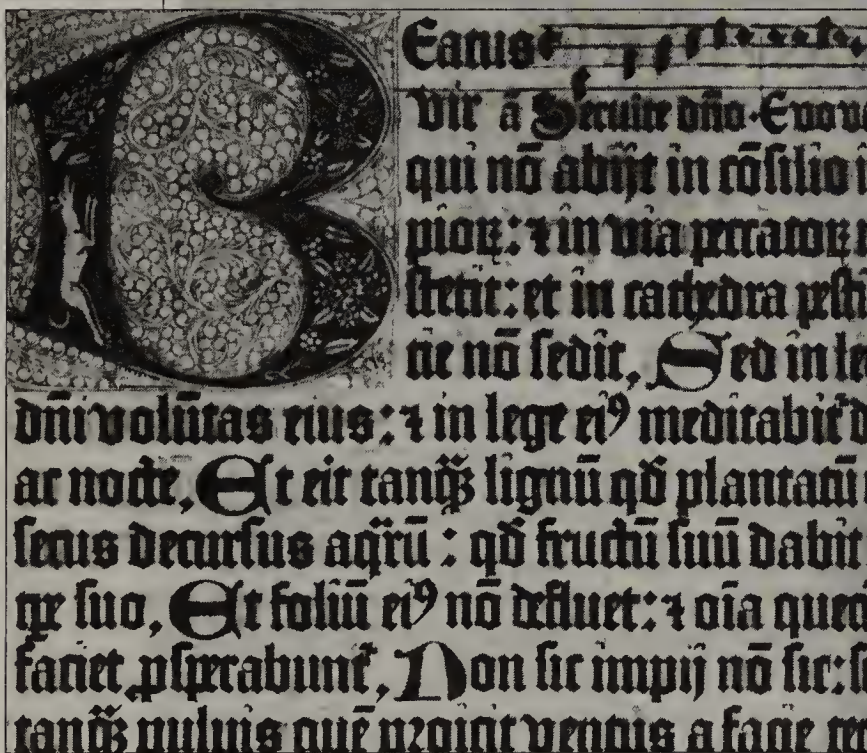 Beatus
vir ā Seruite dn̄o. Euou
qui nō abijt in cōsilio i
pioꝝ: ⁊ in via peccatoꝝ
stetit: et in cathedra pesti
tie nō sedit, Sed in le
dn̄i volūtas eius: ⁊ in lege eiꝰ meditabit᷑ d
ac nocte, Et erit tanq̄ꝫ lignū qd̄ plantatū
secus decursus aq̄rū: qd̄ fructū suū dabit
tꝑe suo, Et foliū eiꝰ nō defluet: ⁊ oīa que
faciet ꝓsperabunt᷑, Non sic impij nō sic: s
tanq̄ꝫ puluis quē proicit ventus a facie te